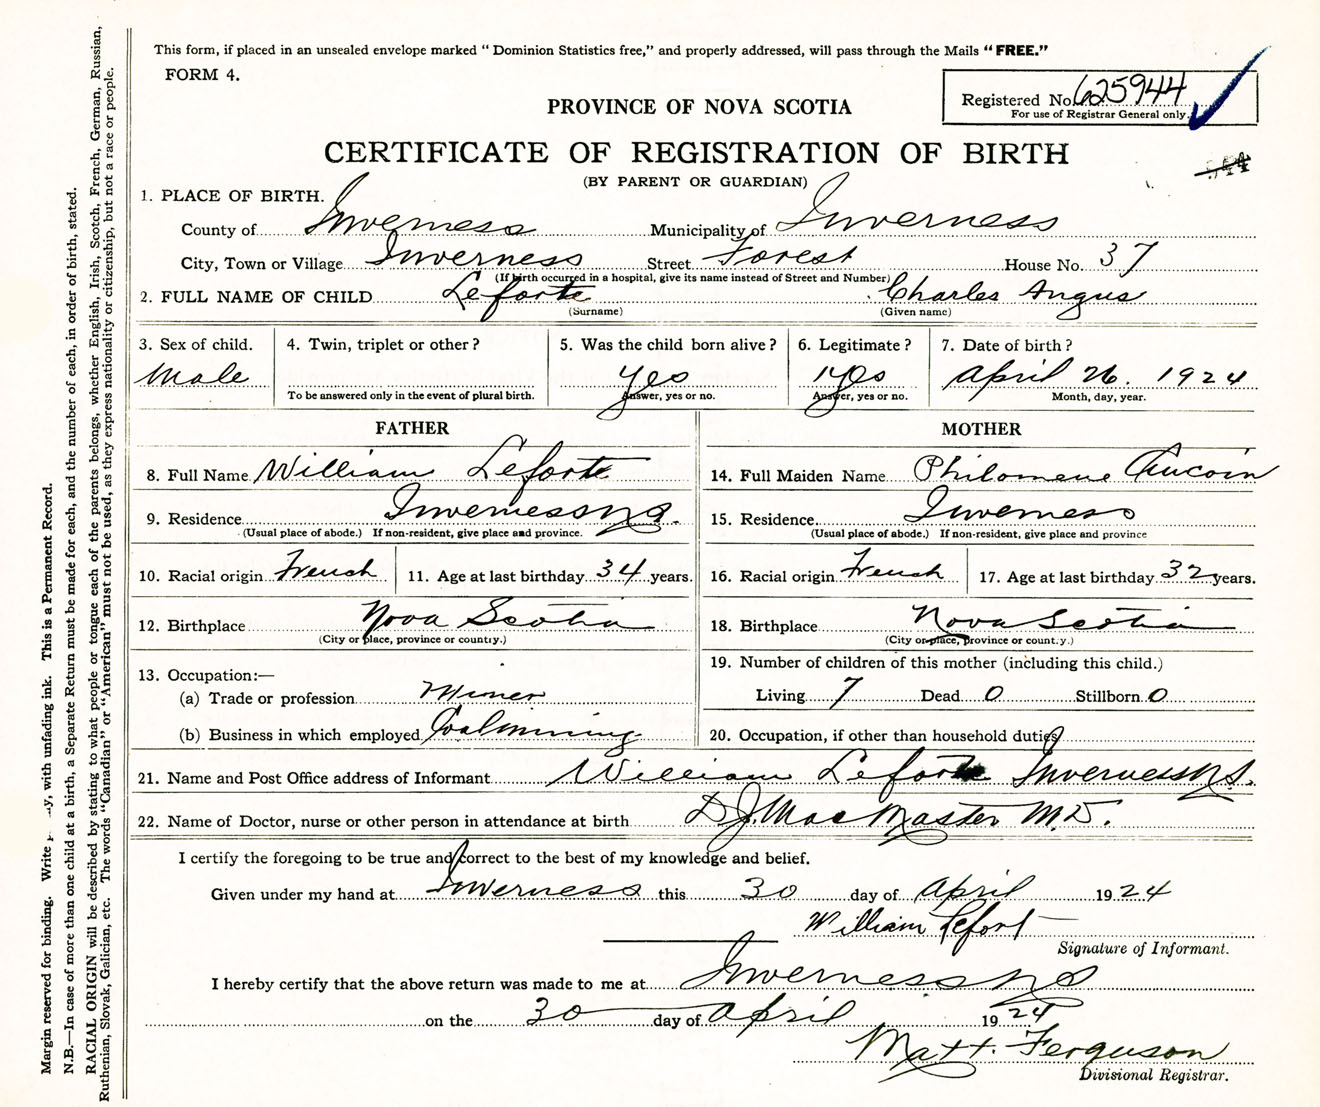 This form, if placed in an unsealed envelope marked "Dominion Statistics free," and properly addressed, will pass through the Mails "FREE."
FORM 4.
Registered No. 625944
For use of Registrar General only.
PROVINCE OF NOVA SCOTIA
CERTIFICATE OF REGISTRATION OF BIRTH
(BY PARENT OR GUARDIAN)
1. PLACE OF BIRTH.
County of Inverness Municipality of Inverness
City, Town or Village Inverness Street Forest House No. 37
(If birth occurred in a hospital, give its name instead of Street and Number)
2. FULL NAME OF CHILD Leforte Charles Angus
(Surname) (Given name)
3. Sex of child. 4. Twin, triplet or other? 5. Was the child born alive? 6. Legitimate? 7. Date of birth?
Male Yes Yes April 26. 1924
To be answered only in the event of plural birth. Answer, yes or no. Answer, yes or no. Month, day, year.
FATHER
8. Full Name William Leforte
9. Residence Inverness N.S.
(Usual place of abode.) If non-resident, give place and province.
10. Racial origin French 11. Age at last birthday 34 years.
12. Birthplace Nova Scotia
(City or place, province or country.)
13. Occupation:—
(a) Trade or profession Miner
(b) Business in which employed Coalmining
MOTHER
14. Full Maiden Name Philomene Aucoin
15. Residence. Inverness
(Usual place of abode.) If non-resident, give place and province
16. Racial origin French 17. Age at last birthday 32 years.
18. Birthplace Nova Scotia
(City or place, province or country.)
19. Number of children of this mother (including this child.)
Living 7 Dead 0 Stillborn 0
20. Occupation, if other than household duties
21. Name and Post Office address of Informant William Leforte Inverness N.S.
22. Name of Doctor, nurse or other person in attendance at birth D J. MacMaster M.D.
I certify the foregoing to be true and correct to the best of my knowledge and belief.
Given under my hand at Inverness this 30 day of April 1924
William Lefort
Signature of Informant.
I hereby certify that the above return was made to me at Inverness N S
on the 30 day of April 1924
Matt. Ferguson
Divisional Registrar.
Margin reserved for binding. Write with unfading ink. This is a Permanent Record.
N.B.—In case of more than one child at a birth, a Separate Return must be made for each, and the number of each, in order of birth, stated.
RACIAL ORIGIN will be described by stating to what people or tongue each of the parents belongs, whether English, Irish, Scotch, French, German, Russian,
Ruthenian, Slovak, Galician, etc. The words "Canadian" or "American" must not be used, as they express nationality or citizenship, but not a race or people.